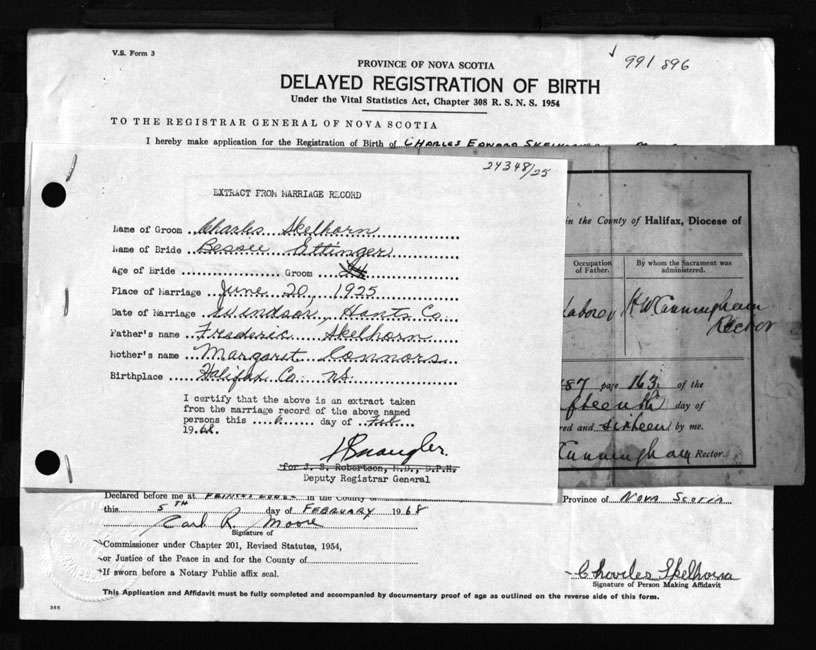 V.S. Form 3
991 896
PROVINCE OF NOVA SCOTIA
DELAYED REGISTRATION OF BIRTH
Under the Vital Statistics Act, Chapter 308 R. S. N. S. 1954
TO THE REGISTRAR GENERAL OF NOVA SCOTIA
I hereby make application for the Registration of Birth of CHARLES EDWARD
24348/25
EXTRACT FROM MARRIAGE RECORD
Name of Groom Charles Skelhorn
Name of Bride Bessie Ettinger
Age of Bride Groom
Place of Marriage June 20, 1925
Date of Marriage Windsor, Hants Co
Father's name Frederic Skelhorn
Mother's name Margaret Connors
Birthplace Halifax Co NS.
I certify that the above is an extract taken
from the marriage record of the above named
persons this 6 day of Feb
1968.
for J. S. Robertson, M.D., D.P.H.
Deputy Registrar General
in the County of Halifax, Diocese of
Occupation
of Father.
By whom the Sacrament was
administered.
Laborer
H W Cunningham
Rector
87 page 163 of the
fteenth day of
red and sixteen by me.
Cunningham Rector.
Declared before me at in the County of
Province of NOVA SCOTIA
this 5TH day of FEBRUARY 1968
Carl R. Moore
Signature of
Commissioner under Chapter 201, Revised Statutes, 1954,
or Justice of the Peace in and for the County of
*If sworn before a Notary Public affix seal.
Charles Skelhorn
Signature of Person Making Affidavit
This Application and Affidavit must be fully completed and accompanied by documentary proof of age as outlined on the reverse side of this form.